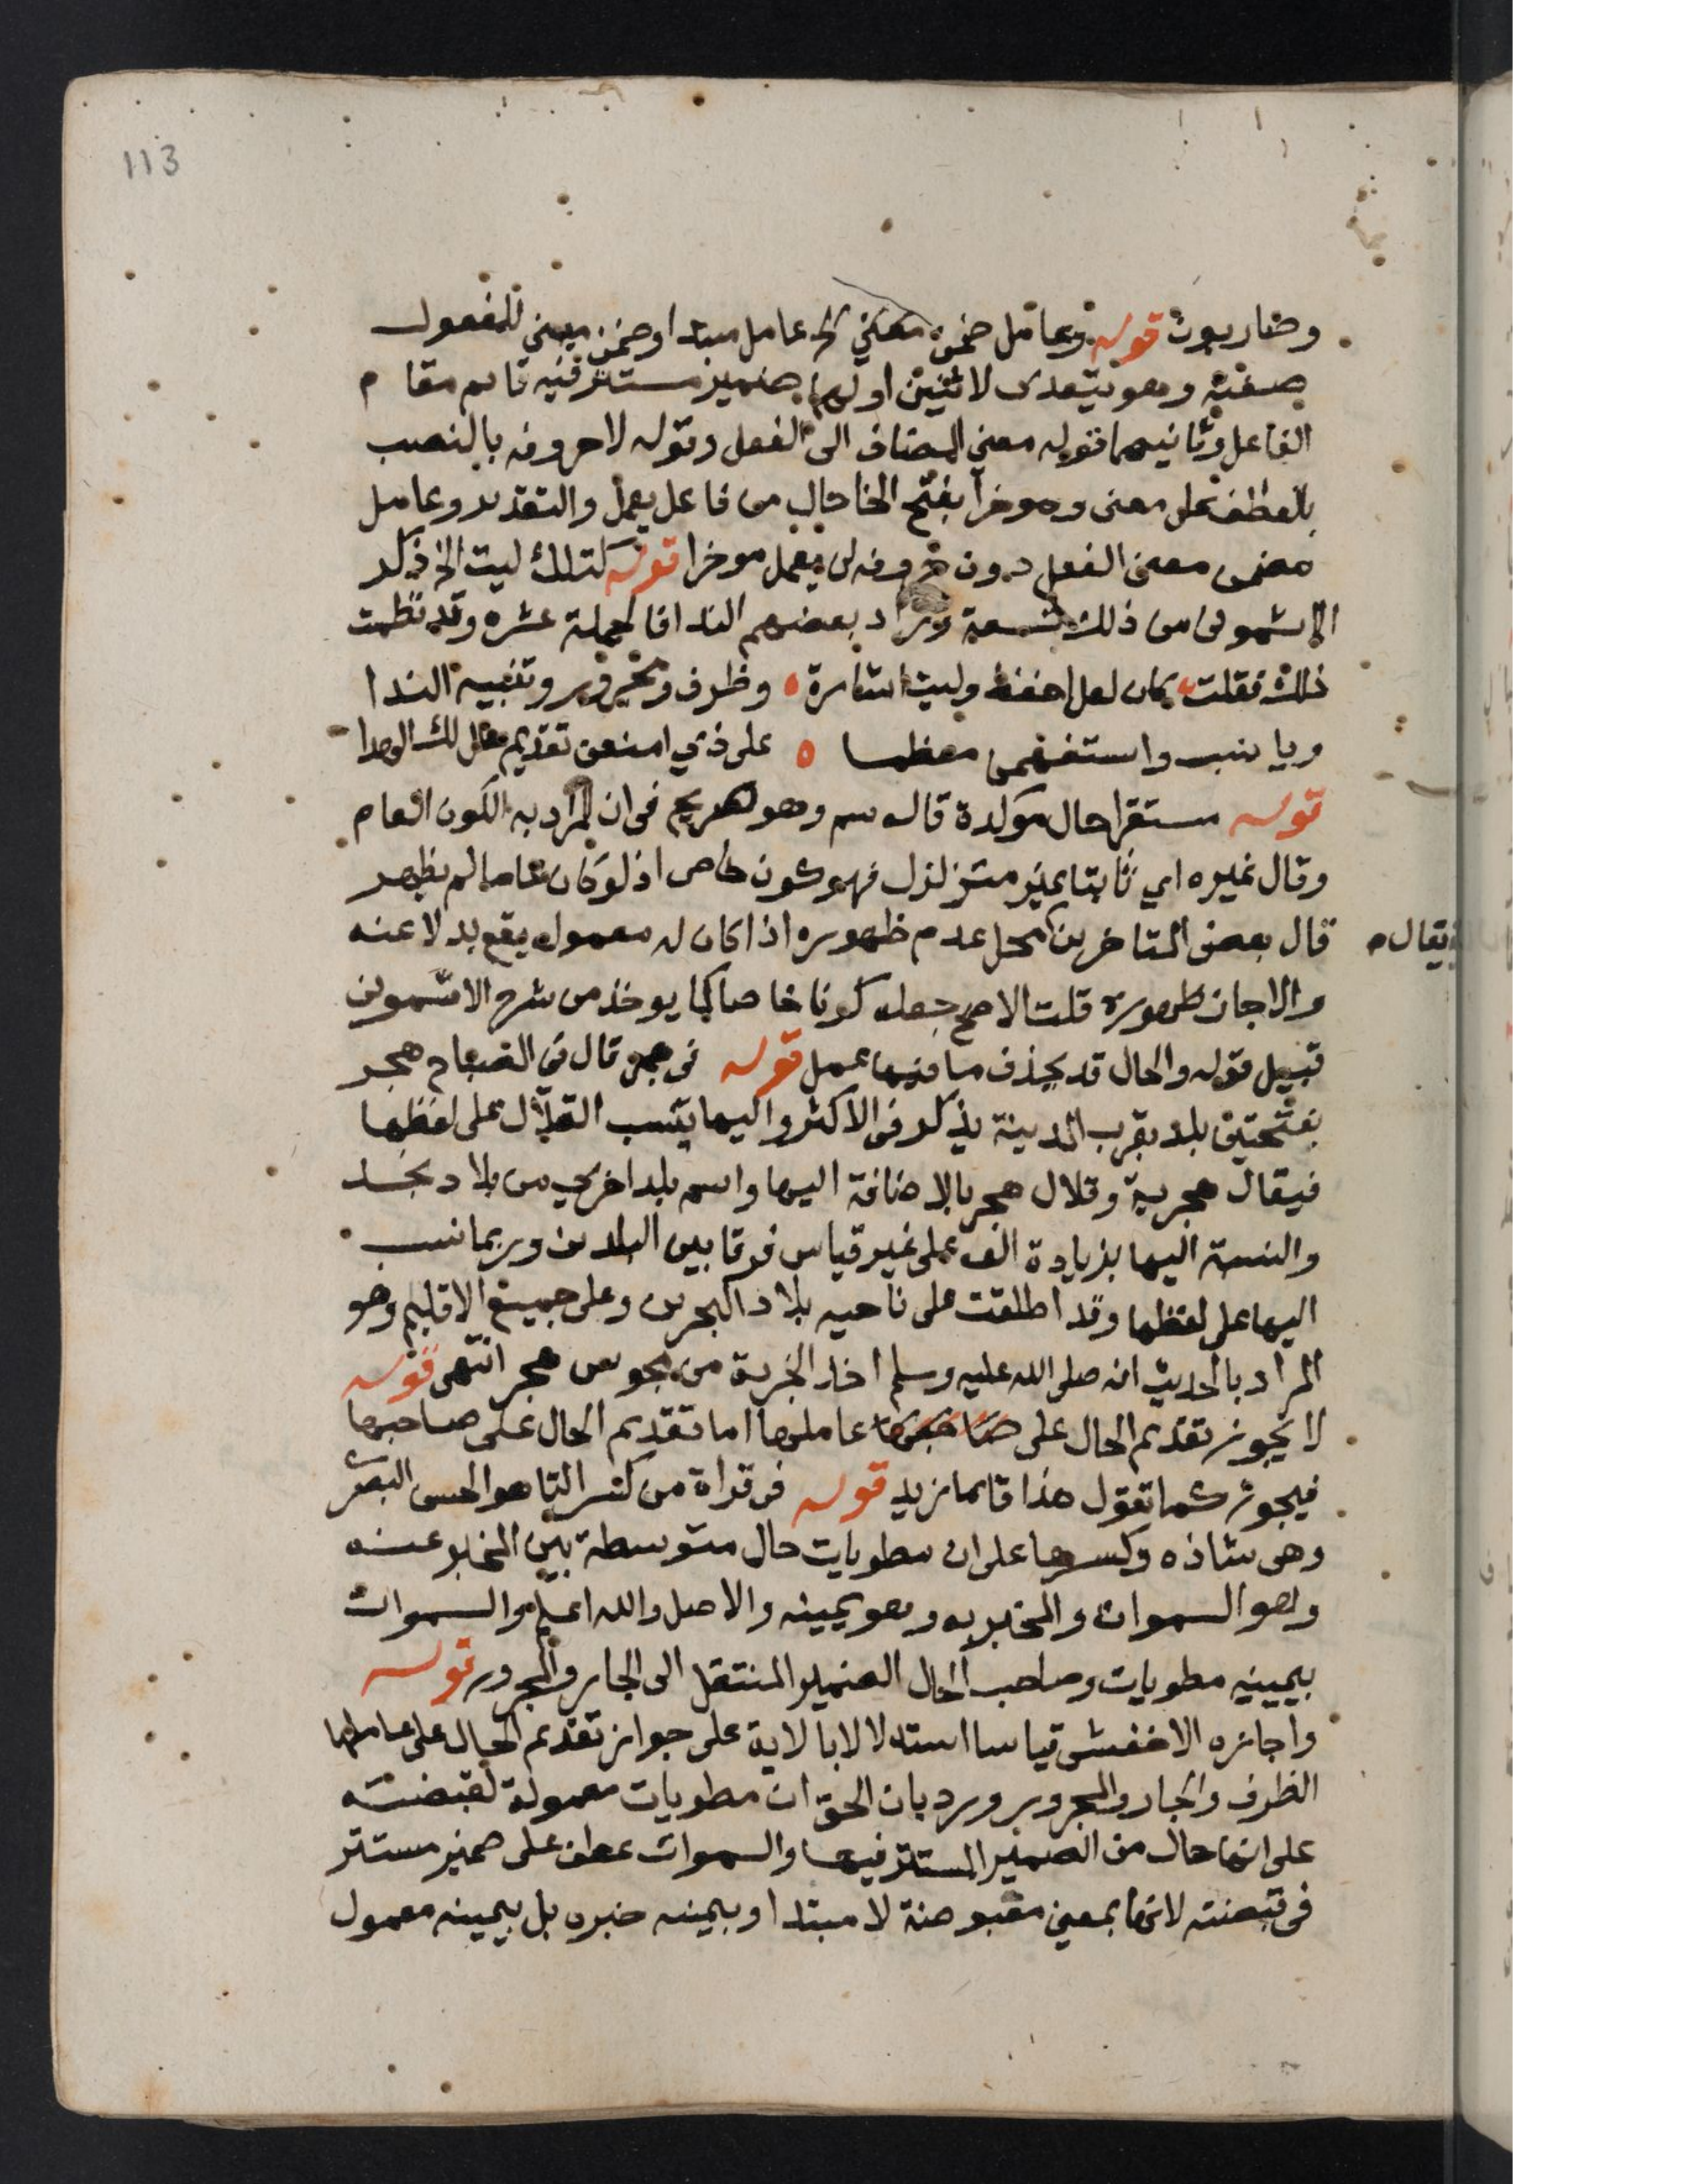 113
وضاربون قوله وعامل ضمن معنى الخ عامل مبتدا وضمن مبني للمفعول
صفته وهو يتعدى لاثنين اولهما ضمير مستتر فيه قايم مقام
الفاعل وثانيهما قوله معنى المضاف الى الفعل وقوله لاحروفه بالنصب
بالعطف على معنى وموخرا بفتح الخا حال من فاعل يعمل والتقدير وعامل
مضمن معنى الفعل دون حروفه لن يعمل موخرا قوله كتلك ليت الخ ذكر
الاشموني من ذلك تسعة وزاد بعضهم الندا فالجملة عشره وقد نظمت
ذلك فقلت كان لعل احفظ وليت اشارة ه وظرف ومجرور وتنبيه الندا
ويا نبب واستفهمن معظما ه على ذي امنعن تقديم حال لك الهدا
قوله مستقرا حال موكدة قال سم وهو صريح في ان المراد به الكون العام
وقال غيره اي ثابتا غير متزلزل فهو كون خاص اذ لو كان عاما لم يظهر
قال بعض المتاخرين محل عدم ظهوره اذا كان له معمول يقع بدلا عنه
يقال ه
والا جاز ظهوره قلت الاصح جعله كونا خاصا كما يوخذ من شرح الاشموني
قبيل قوله والحال قد يحذف ما فيها عمل قوله في هجر قال في المصباح هجر
بفتحتين بلد بقرب المدينة يذكر في الاكثر واليها ينسب القلال على لفظها
فيقال هجرية وقلال هجر بالاضافة اليها واسم بلد اخرى من بلاد نجد
والنسبة اليها بزيادة الف على غير قياس فرقا بين البلدين وربما نسب
اليها على لفظها وقد اطلقت على ناحيه بلاد البحرين وعلى جميع الاقليم وهو
المراد بالحديث انه صلى الله عليه وسلم اخذ الجزية من مجوس هجر انتهى قوله
لا يجوز تقديم الحال على صاحبها عاملها اما تقديم الحال على صاحبها
فيجوز كما تقول هذا قايما زيد قوله في قراة من كسر التا هو الحسن البصري
وهي شاذه وكسرها على ان مطويات حال متوسطة بين المخبر عنه
وهو السموات والمخبر به وهو يمينه والاصل والله اعلم والسموات
بيمينه مطويات وصاحب الحال الضمير المنتقل الى الجار والمجرور قوله
واجازه الاخفش قياسا استدلالا بالاية على جواز تقديم الحال على عاملها
الظرف والجار والمجرور ورد بان الحق ان مطويات معمولة لقبضته
على انها حال من الضمير المستتر فيها والسموات عطف على ضمير مستتر
في قبضته لانها بمعنى مقبوضة لا مبتدا وبيمينه خبره بل بيمينه معمول